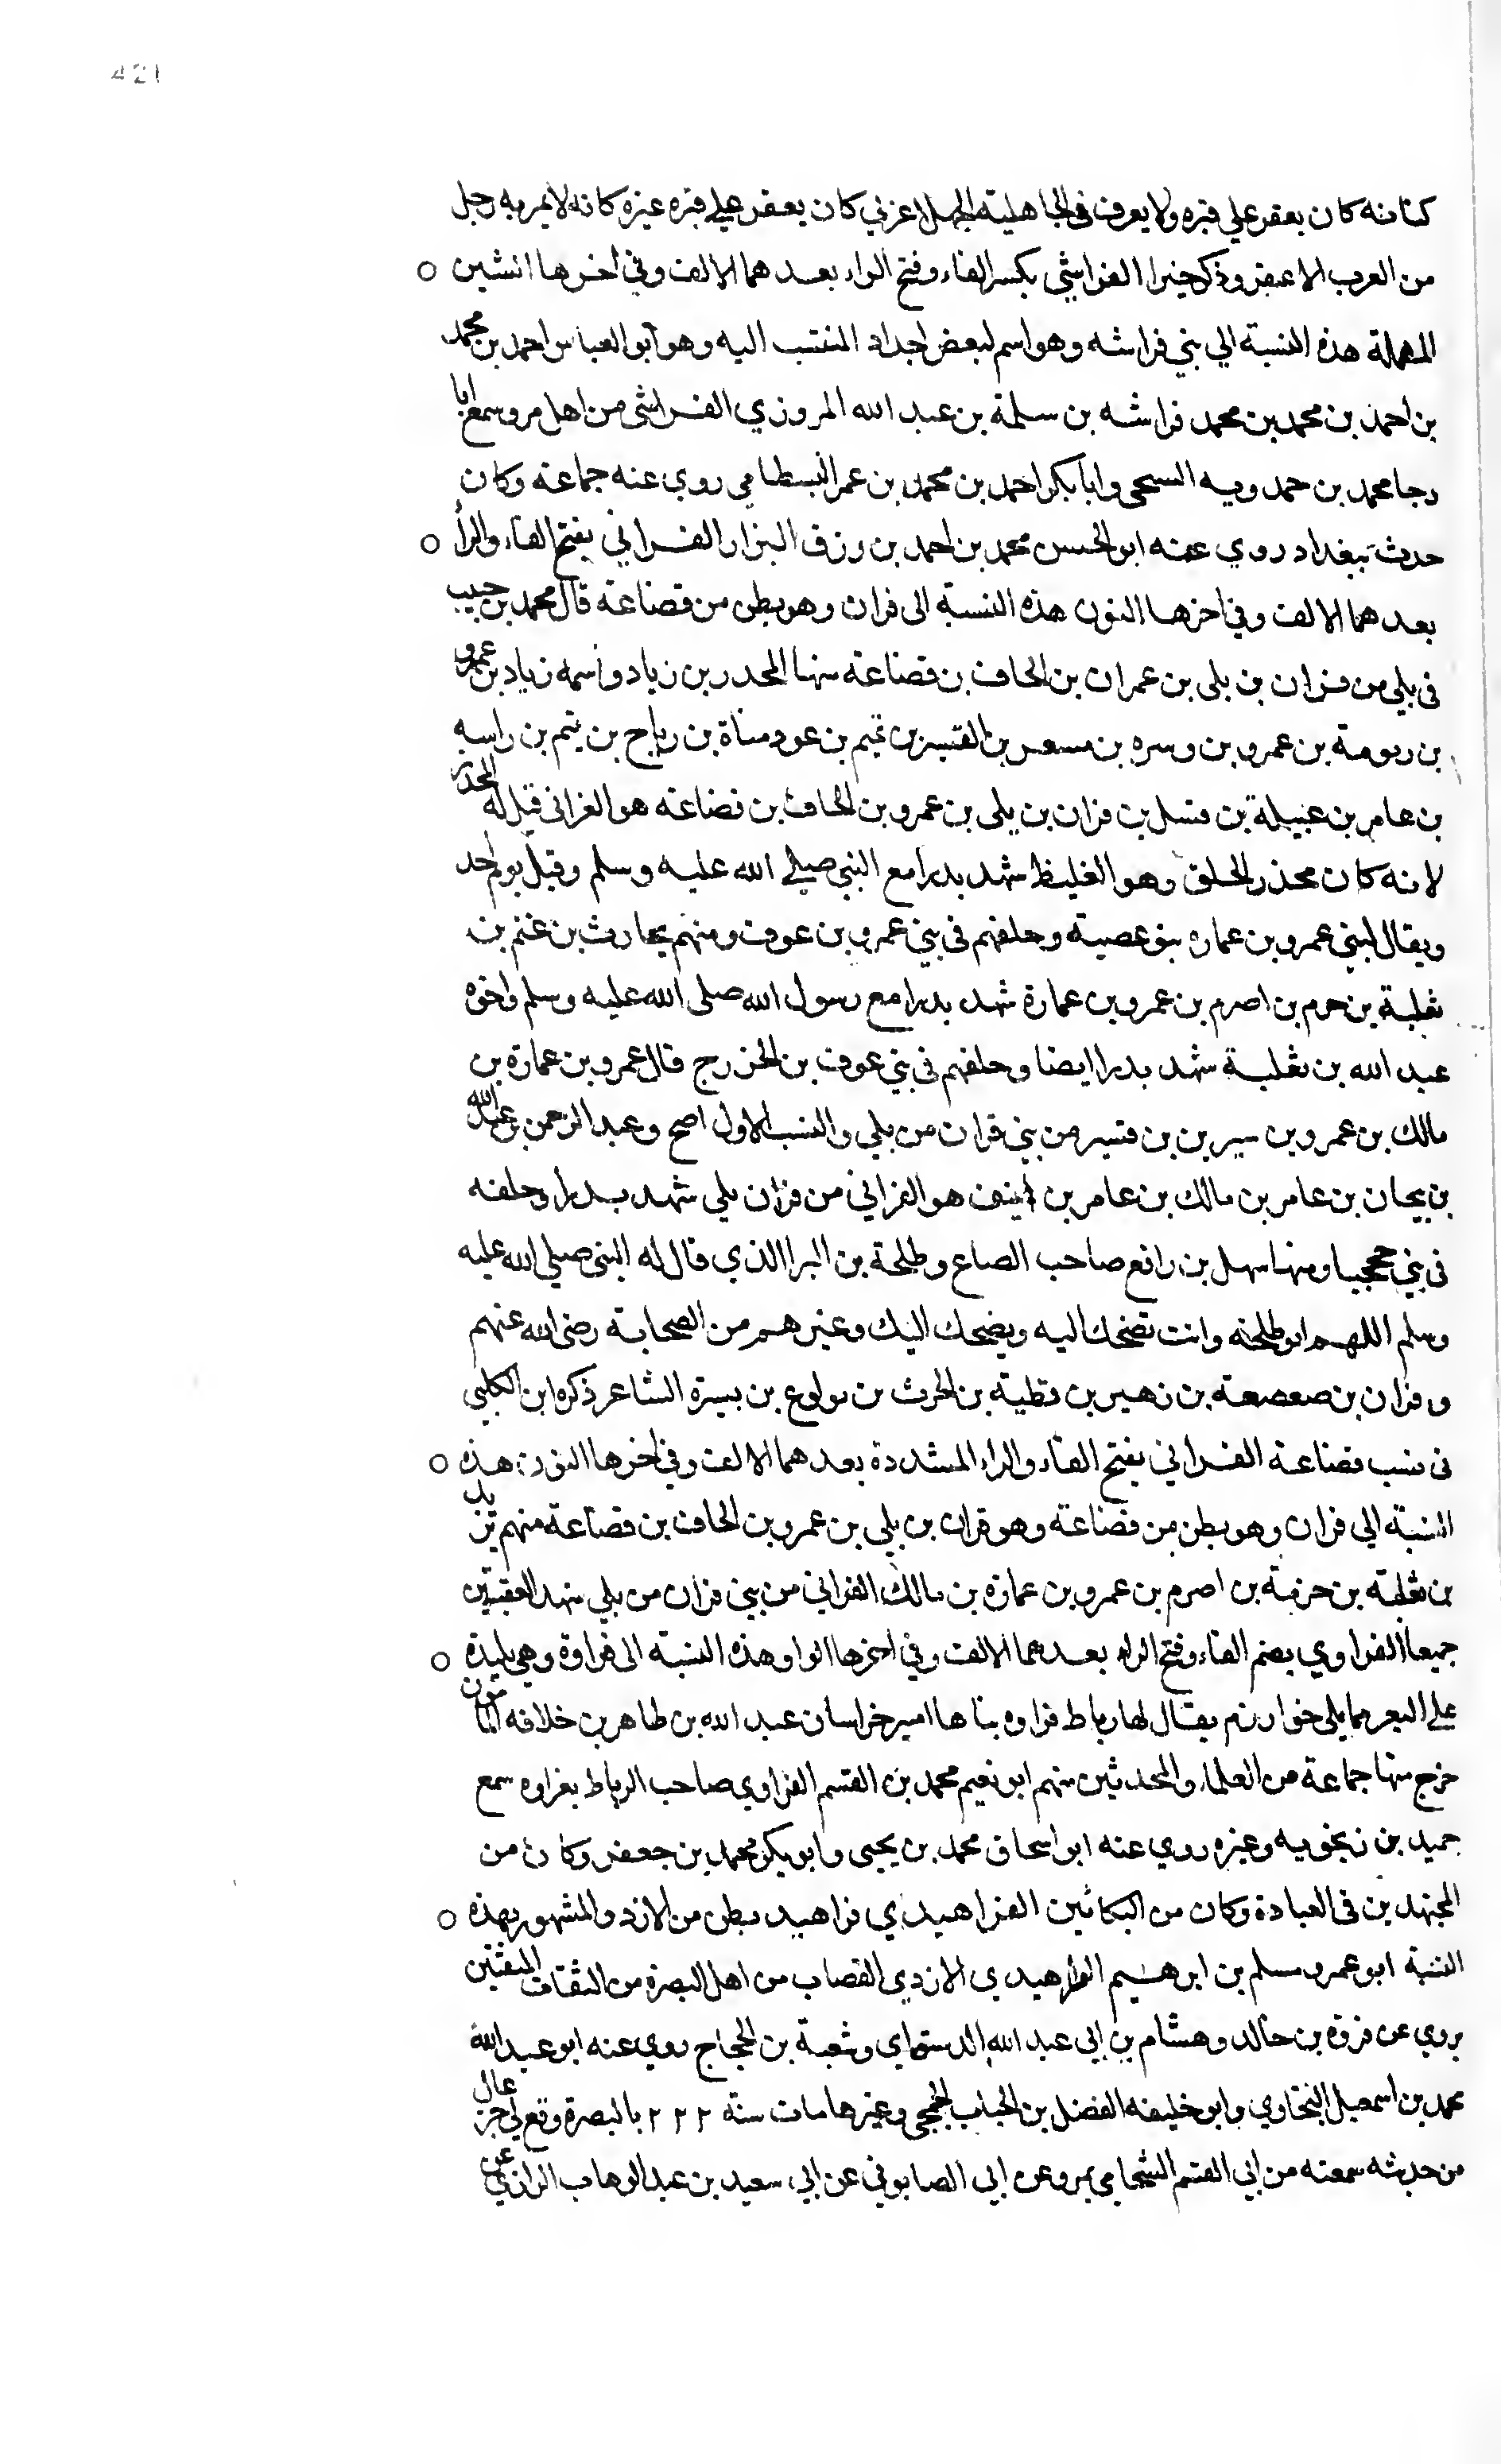 421
كنانه كان يعقر علي قبره ولا يعرف في الجاهلية الجهلا عربي كان يعقر علي قبره غيره كانه لا يمر به رجل
من العرب الا عقر وذكر خيرا الفراشي بكسر الفاء وفتح الراء بعدهما الالف وفي اخرها الشين
المهملة هذه النسبة الي بني فراشه وهو اسم لبعض اجداد المنتسب اليه وهو ابو العباس احمد بن محمد
بن احمد بن محمد بن محمد فراشه بن سلمة بن عبد الله المروزي الفراشي من اهل مرو سمع ابا
رجا محمد بن حمدويه السنجي وابا بكر احمد بن محمد بن عمر البسطامي روي عنه جماعة وكان
حدث ببغداد روي عنه ابو الحسن محمد بن احمد بن رزق البزار الفراني بفتح الفاء والرأ
بعدهما الالف وفي اخرها النون هذه النسبة الى فران وهو بطن من قضاعة قال محمد بن حبيب
في بلي من فران بن بلى بن عمران بن الحاف بن قضاعة منها المجدر بن زياد واسمه زياد بن عمرو
بن رمومة بن عمرو بن وسره بن مسعر بن القشير بن تميم بن عود مناة بن رباح بن يتم بن راسه
بن عامر بن عبيلة بن فسيل بن فران بن يلى بن عمرو بن الحاف بن قضاعة هو الفراني قيل له المجدر
لانه كان مجذر الخلق وهو الغليظ شهد بدرا مع النبي صلي الله عليه وسلم وقتل يوم احد
ويقال لبني عمرو بن عماره بنو عصية وحلفهم في بني عمرو بن عوف ومنهم بحارث بن غنم بن
ثعلبة بن حرم بن اصرم بن عمرو بن عمارة شهد بدرا مع رسول الله صلى الله عليه وسلم واخوه
عبد الله بن ثعلبة شهد بدرا ايضا وحلفهم في بني عوف بن الخزرج قال عمرو بن عمارة بن
مالك بن عمرو بن سيرين بن قشير من بني فران من بلي والنسب الاول اصح وعبد الرحمن بن عبد الله
بن بيحان بن عامر بن مالك بن عامر بن انيف هو الفراني من فران بلي شهد بدرا وحلفه
في بني حججبا ومنها سهل بن رافع صاحب الصاع وطلحة بن البرا الذي قال له النبي صلي الله عليه
وسلم اللهم ابو طلحة وانت تضحك اليه ويضحك اليك وغيرهم من الصحابة رضي الله عنهم
وفران بن صعصعة بن زهير بن قطية بن الحرث بن يولوع بن بسيرة الشاعر ذكره ابن الكلبي
في نسب قضاعة الفراني بفتح الفاء والراء المشددة بعدهما الالف وفي اخرها النون هذه
النسبة الي فران وهو بطن من قضاعة وهو فران بن بلي بن عمرو بن الحاف بن قضاعة منهم يزيد
بن ثعلبة بن خزمة بن اصرم بن عمرو بن عمارة بن مالك الفراني من بني فران من بلي شهد العقبتين
جميعا الفراوي بضم الفاء وفتح الراء بعدهما الالف وفي اخرها الواو هذه النسبة الى فراوة وهي بليدة
علي الثغر مما يلى خوارزم يقال لها رباط فراوه بناها امير خراسان عبد الله بن طاهر بن خلافه المامون
خرج منها جماعة من العلماء والمحدثين منهم ابو نعيم محمد بن القسم الفراوي صاحب الرباط بفراوه سمع
حميد بن زنجويه وغيره روي عنه ابو اسحاق محمد بن يحيى وابو بكر محمد بن جعفر وكان من
المجتهدين في العبادة وكان من البكائين الفراهيدي فراهيد بطن من الازد والمشهور بهذه
النسبة ابو عمرو مسلم بن ابرهيم الفراهيدي الازدي القصاب من اهل البصرة من الثقات المتقنين
يروي عن قرة بن خالد وهشام بن ابي عبد الله الدستواي وشعبة بن الحجاج روي عنه ابو عبد الله
محمد بن اسمعيل البخاري وابو خليفه الفضل بن الحباب الجمحي وغيرها مات سنة ٢٢٢ بالبصرة وقع لي جز عال
من حديثه سمعته من ابي القسم الشحامي بمرو عن ابي الصابوني عن ابي سعيد بن عبد الوهاب الرازي عن